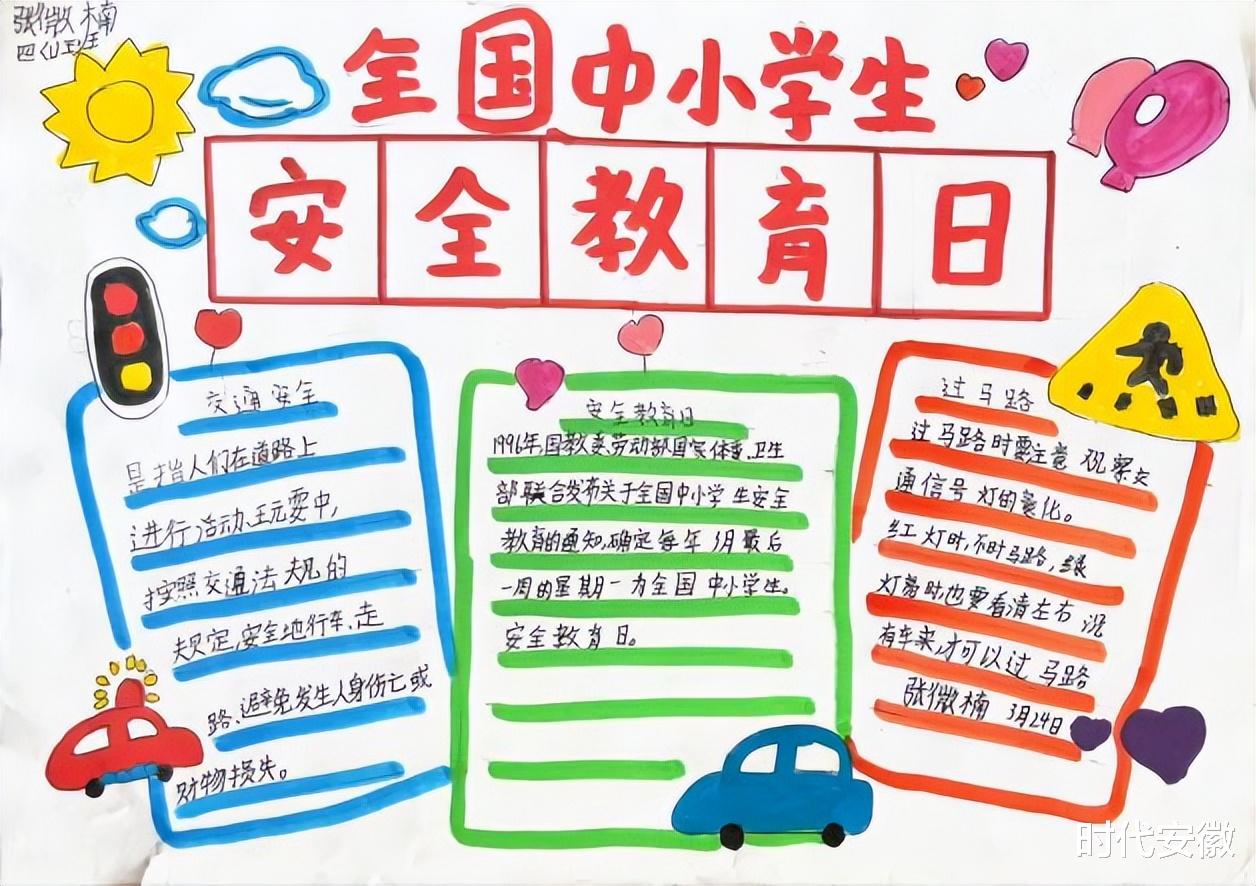 张微楠
四(1)班
全国中小学生
安全教育日
交通安全
是指人们在道路上
进行活动、玩耍中,
按照交通法规的
规定,安全地行车、走
路、避免发生人身伤亡或
财物损失。
安全教育日
1996年,国教委、劳动部、国家体委、卫生
部联合发布关于全国中小学生安全
教育的通知,确定每年3月最后
一周的星期一为全国中小学生。
安全教育日。
过马路
过马路时要注意观察交
通信号灯的变化。
红灯时,不过马路,绿
灯亮时也要看清左右 没
有车来,才可以过马路
张微楠 3月24日
时代安徽